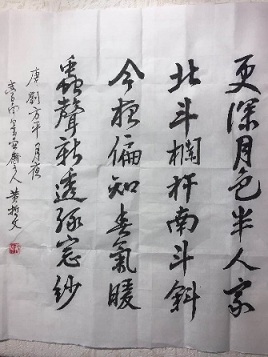 更深月色半人家
北斗欄杆南斗斜
今夜偏知春氣暖
蟲聲新透綠窓紗
唐劉方平月夜